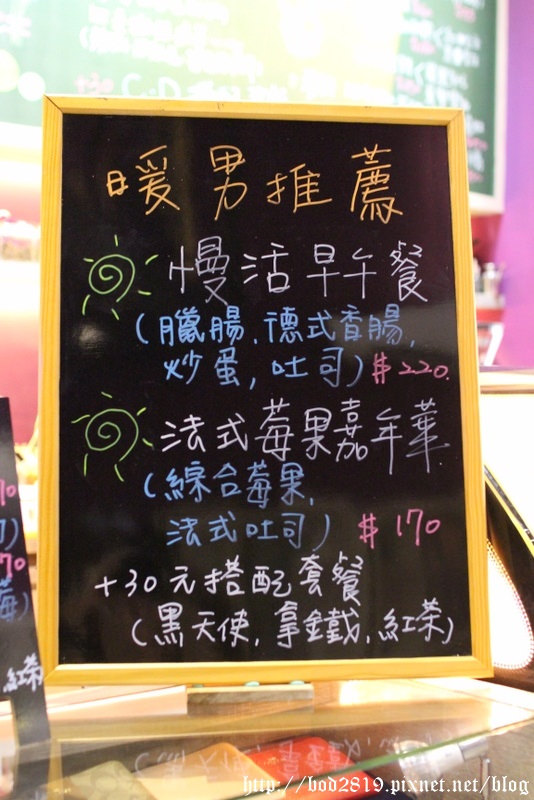 暖男推薦
慢活早午餐
(臘腸,德式香腸,
炒蛋,吐司) $220.
法式莓果嘉年華
(綜合莓果,
法式吐司) $170
+30元搭配套餐
(黑天使,拿鐵,紅茶)
70
莓)
紅茶
http://bod2819.pixnet.net/blog